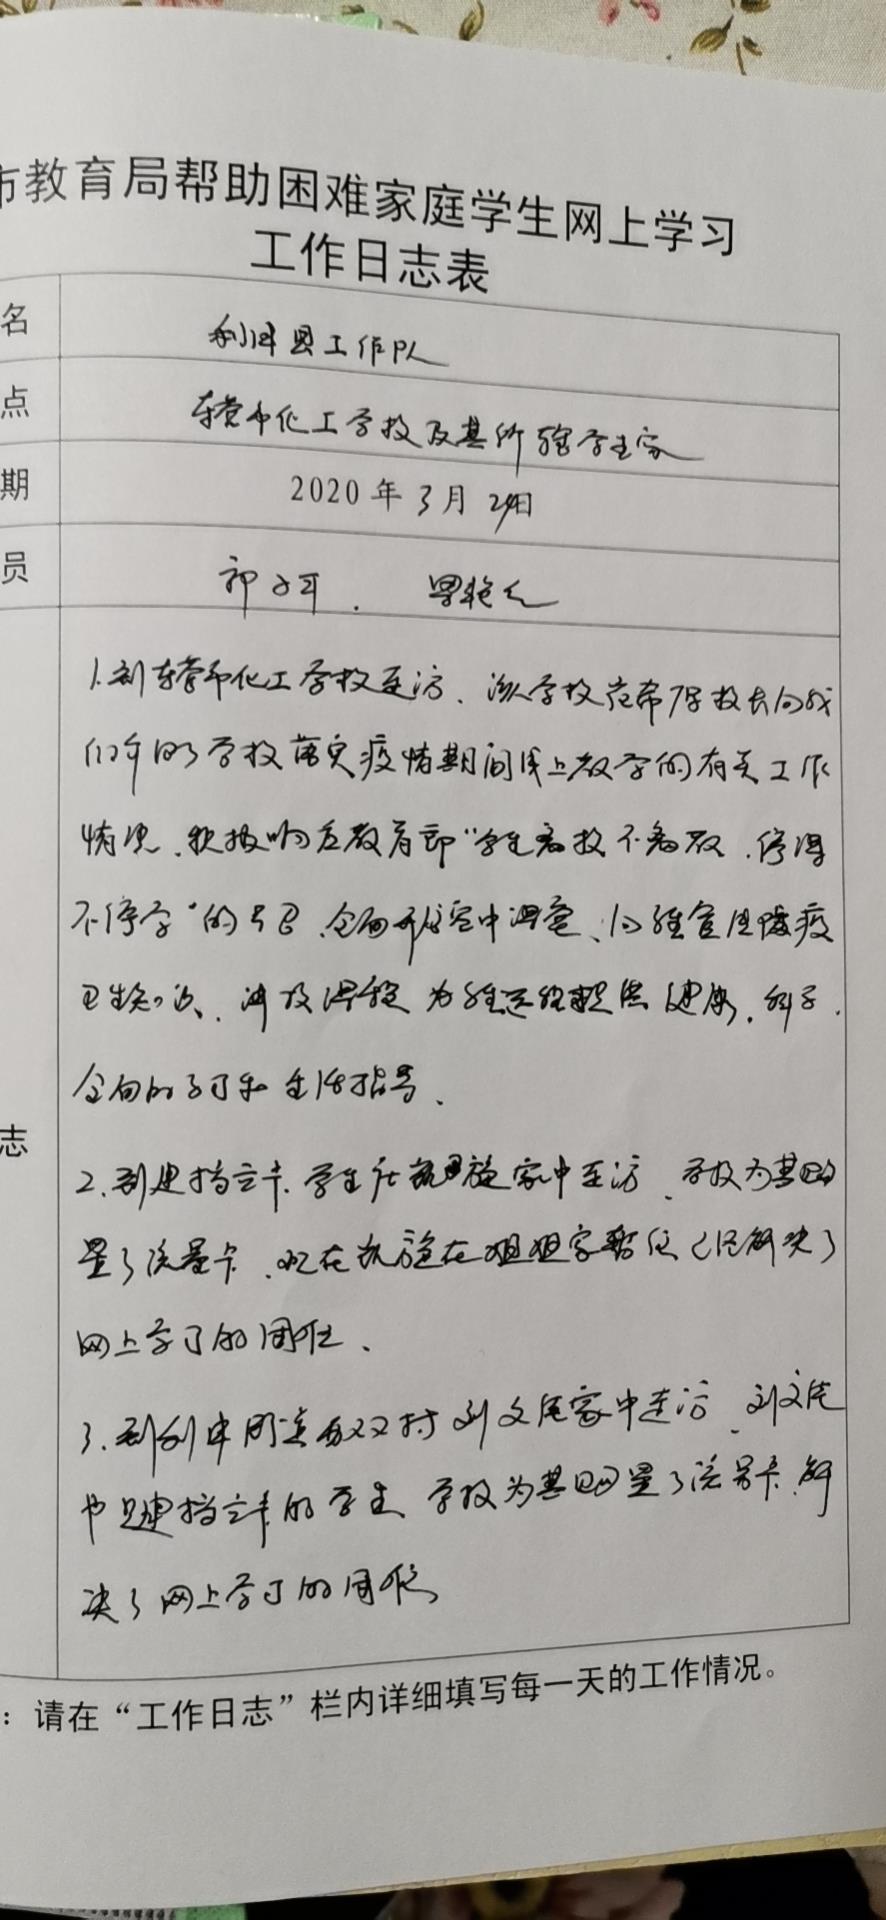 市教育局帮助困难家庭学生网上学习
工作日志表
名 利津县工作队
点 东营市化工学校及其所辖学生家
期 2020年3月24日
员
1.到东营市化工学校走访、该学校 校长向我
们介绍了学校落实疫情期间线上教学的有关工作
情况、积极响应教育部“学生离校不离教、停课
不停学”的号召、全面开设空中课堂、 防疫
卫生知识、 课程为 提供健康、科学、
全面的学习和生活指导、
2.到建档立卡学生 家中走访、学校为其配
置了流量卡、现在 在姐姐家暂住已经解决了
网上学习的困难、
3.到利津 双村刘文 家中走访、刘文
也是建档立卡的学生、学校为其配置了流量卡、解
决了网上学习的困难
志
：请在“工作日志”栏内详细填写每一天的工作情况。